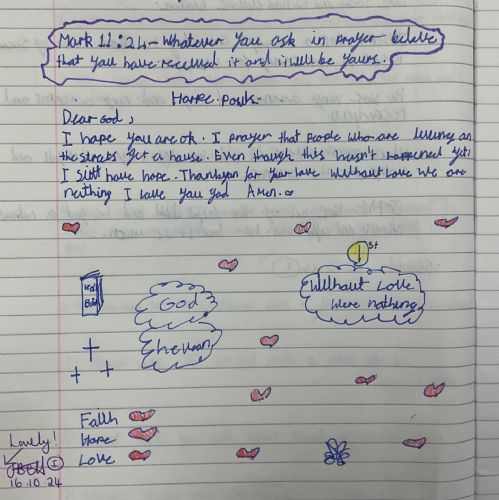 Mark 11:24 - Whatever you ask in prayer believe
that you have received it and it will be yours.
Dear God,
I hope you are ok. I prayer that people who are liveing on
the strats get a house. Even though this hasn't happened yet
I still have hope. Thankyou for your love without Love we are
nothing I love you god Amen.
1st
Without Love
were nothing
God
Faith
Hope
Love
Lovely!
I
16.10.24